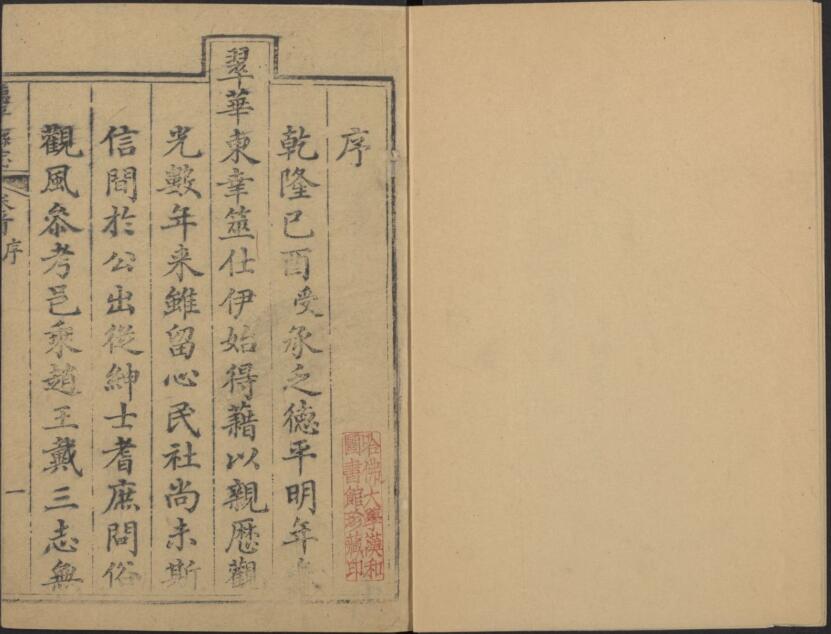 序
乾隆己酉受承乏德平明年
翠華東幸筮仕伊始得藉以親歷觀
光數年来雖留心民社尚未斯
信間於公出從紳士耆庶問俗
觀風叅考邑乘趙王戴三志無
序
一
哈佛大學漢和
圖書館珍藏印